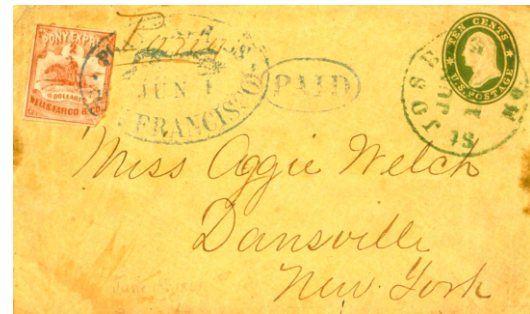 PONY EXPRESS
2
DOLLARS
WELLS FARGO & CO.
JUN 1
FRANCISCO
PAID
TEN CENTS
U.S. POSTAGE
ST JOSEPH
MO
Miss Aggie Welch
Dansville
New York